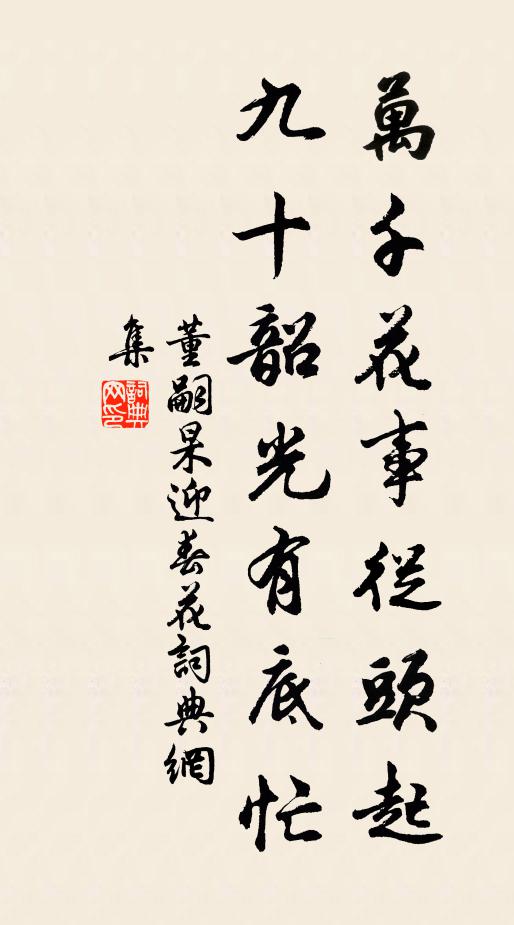 萬千花事從頭起
九十韶光有底忙
董嗣杲迎春花詞典網
集
詞典網印